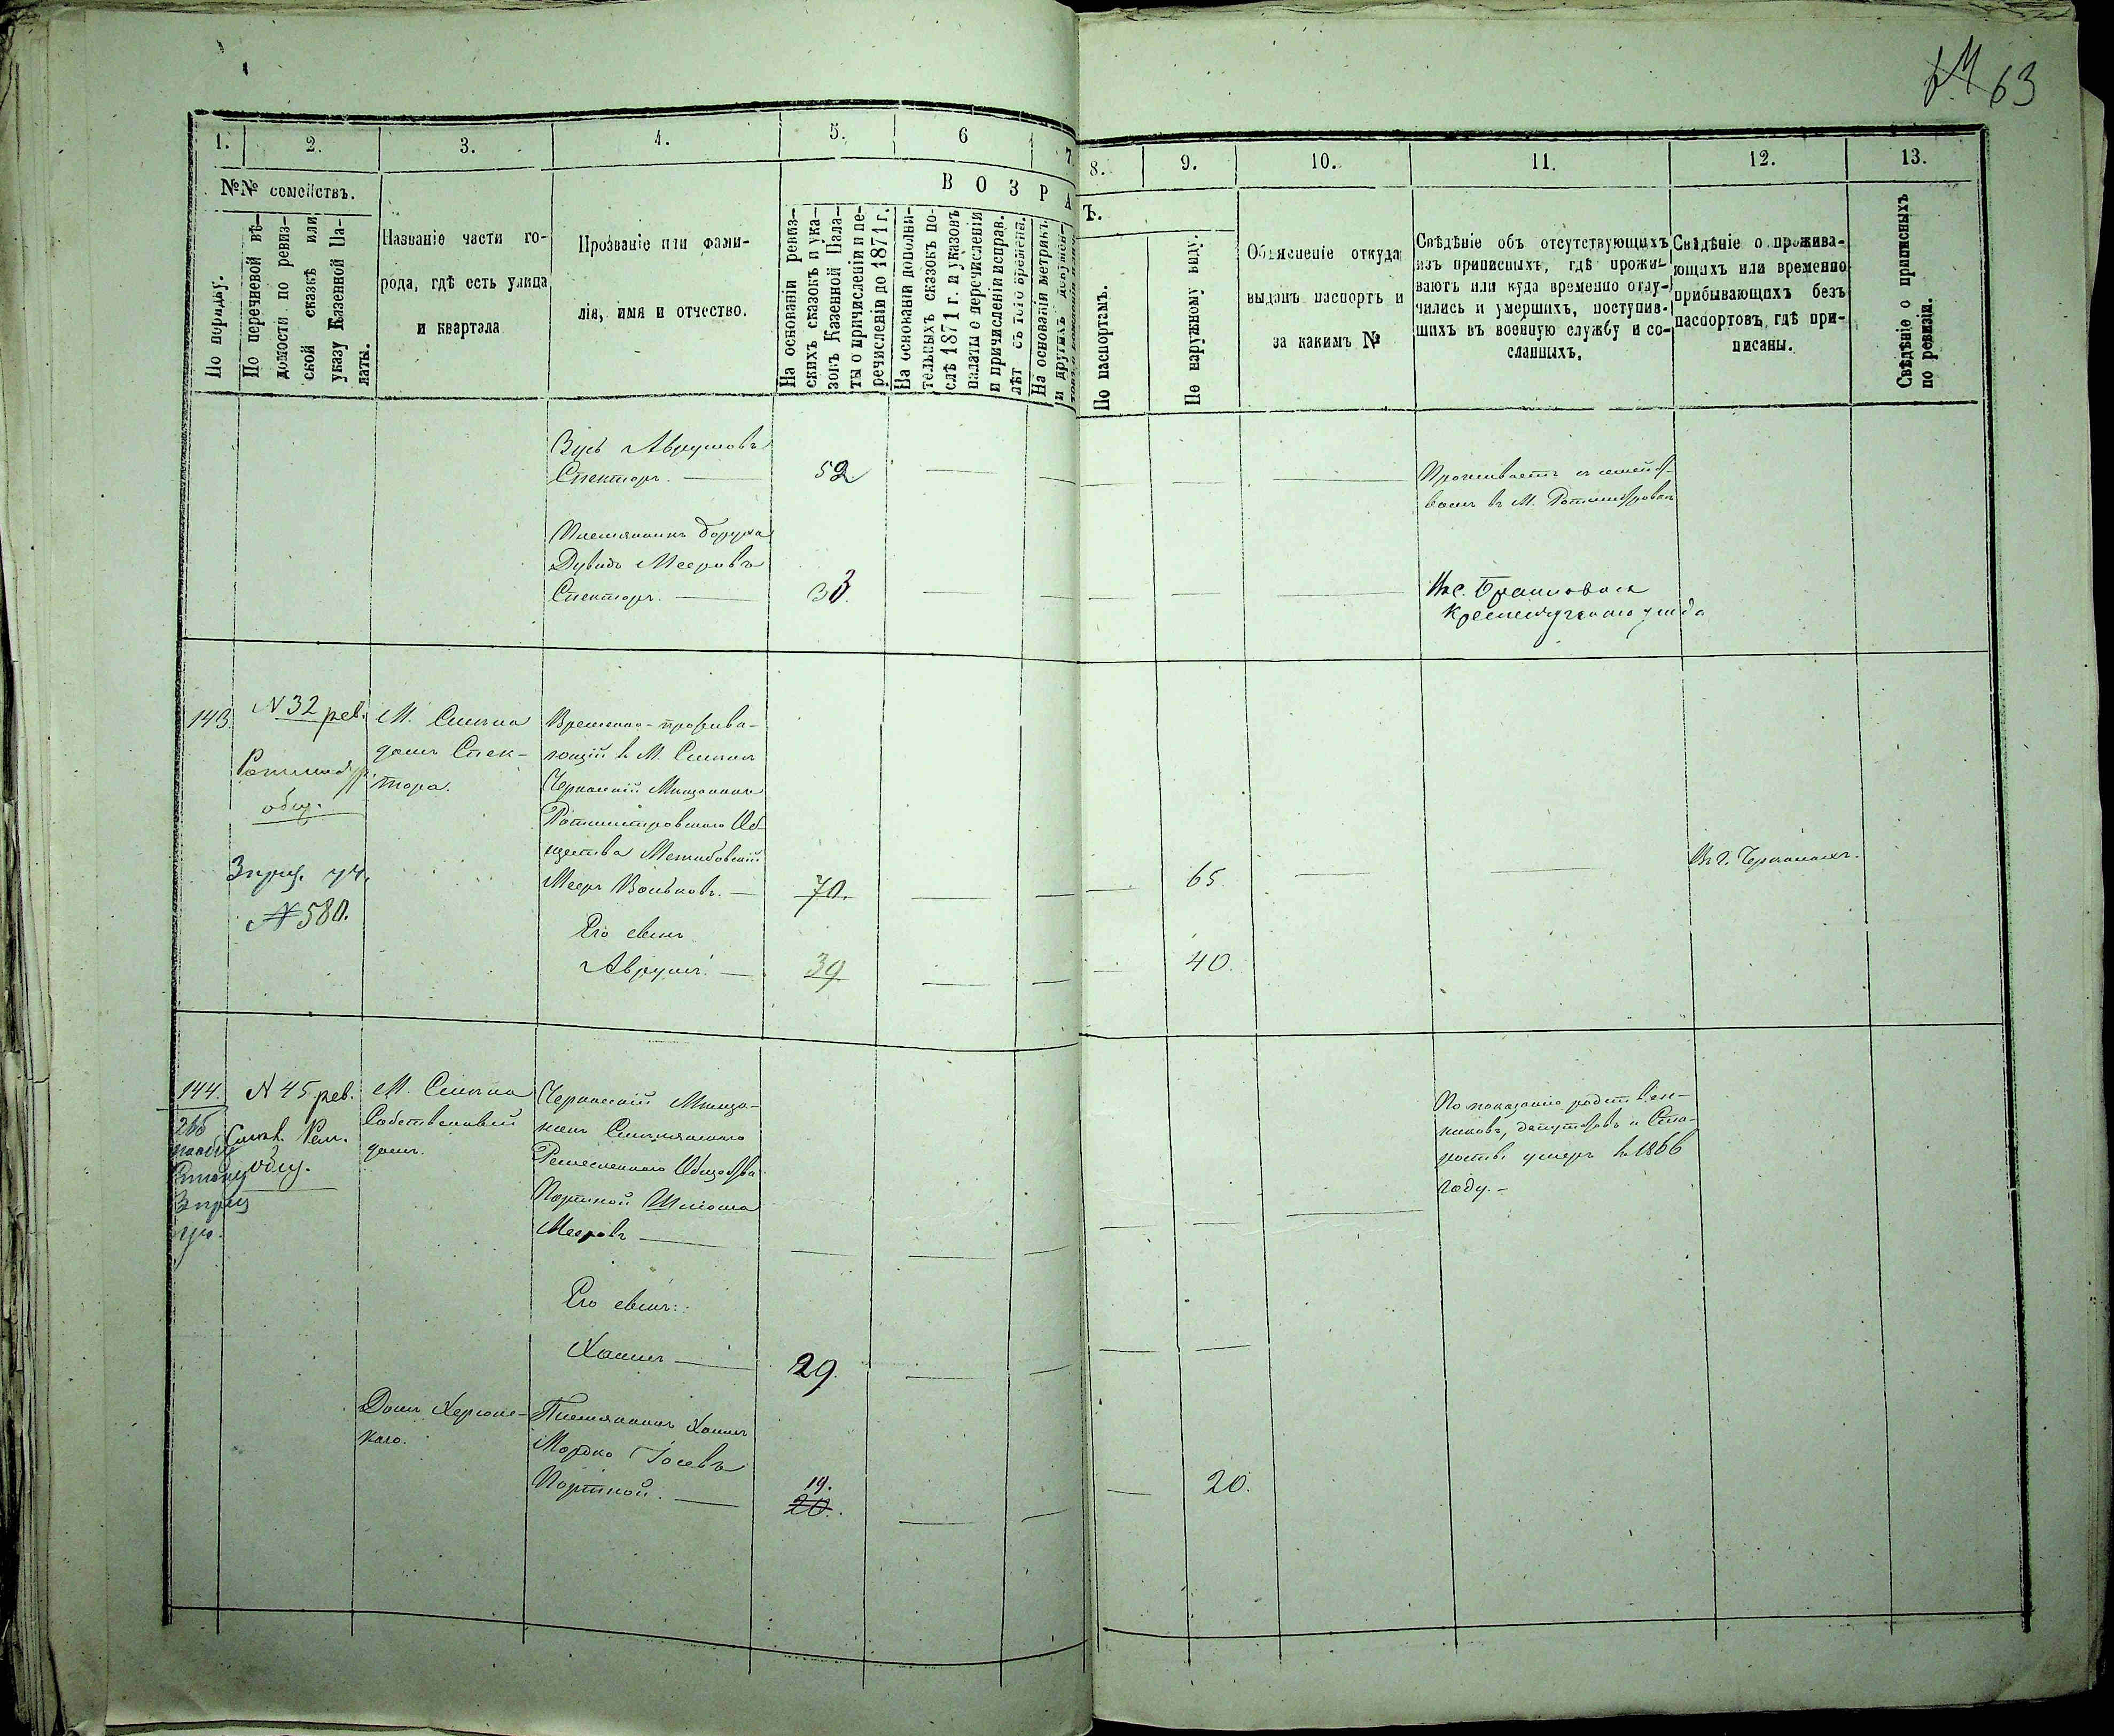 63
1.
2.
3.
4.
5.
6
7
8.
9.
10.
11.
12.
13.
№№ семействъ.
В О З Р А
Ъ.
По порядку.
По перечневой вѣ-
домости по ревиз-
ской сказкѣ или
указу Казенной Па-
латы.
Названіе части го-
рода, гдѣ есть улица
и квартала
Прозваніе или фами-
лія, имя и отчество.
На основаніи ревиз-
скихъ сказокъ и ука-
зовъ Казенной Пала-
ты о причисленіи и пе-
речисленіи до 1871 г.
На основаніи дополни-
тельныхъ сказокъ по-
слѣ 1871 г. и указовъ
палаты о перечисленіи
и причисленіи исправ.
лѣт съ того времени.
На основаніи метрикъ
и другихъ докумен-
По паспортамъ.
По наружному виду.
Объясненіе откуда
выданъ паспортъ и
за какимъ №
Свѣдѣніе объ отсутствующихъ
изъ приписныхъ, гдѣ прожи-
ваютъ или куда временно отлу-
чились и умершихъ, поступив-
шихъ въ военную службу и со-
сланныхъ.
Свѣдѣніе о прожива-
ющихъ или временно
прибывающихъ безъ
паспортовъ, гдѣ при-
писаны.
Свѣдѣніе о приписныхъ
по ревизіи.
Зусь Аврумовъ
Спекторъ. 52
Проживаетъ съ семейст-
вомъ въ М. Ротмистровкѣ
Племянникъ Боруха
Дувидъ Мееровъ
Спекторъ. 33.
Кременчугскаго уѣзда
143.
N 32 рев.
Ротмистр.
общ.
N 580.
М. Смѣла
домъ Спек-
тора.
Временно-прожива-
ющій в М. Смѣлѣ
Черкаскій Мѣщанинъ
Ротмистровскаго Об-
щества Межибовскій
Мееръ Вольковъ. 70. 65.
Въ г. Черкасахъ.
Его сынъ
Аврумъ. 39 40.
144.
N 45 рев.
Смѣл. Рем.
общ.
М. Смѣла
Собственный
домъ.
Черкаскій Мѣща-
нинъ Смѣлянскаго
Ремесленнаго Общества
Портной Шлiома
Мееровъ
По показанію родствен-
никовъ, депутатовъ и Ста-
росты умеръ въ 1866
году.
Его сынъ:
Хаимъ 29.
Домъ Херсон-
скаго.
Племянникъ Хаима
Мордко Іосевъ
Портной. 19.
20. 20.